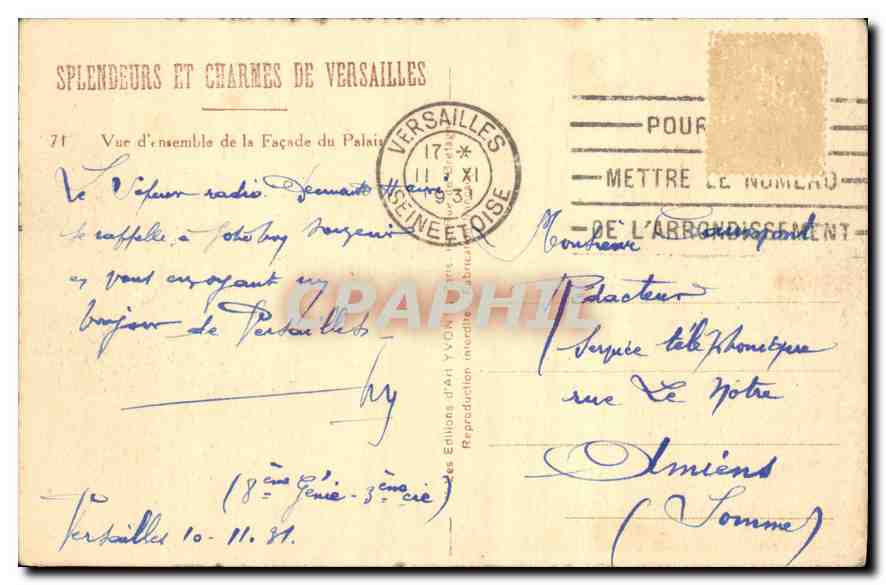 SPLENDEURS ET CHARMES DE VERSAILLES
71 Vue d'ensemble de la Façade du Palais
Le Sapeur radio
se rappelle à
en vous envoyant un
bonjour de Versailles
(8ème Génie - 3ème cie)
Versailles 10-11.31.
VERSAILLES
17 - *
11 XI
193
SEINE ET OISE
POUR
METTRE LE NUMERO
DE L'ARRONDISSEMENT
Les Editions d'Art YVON
Reproduction interdite
CPAPHIL
Monsieur
Rédacteur
Service téléphonique
rue Le Notre
Amiens
(Somme)